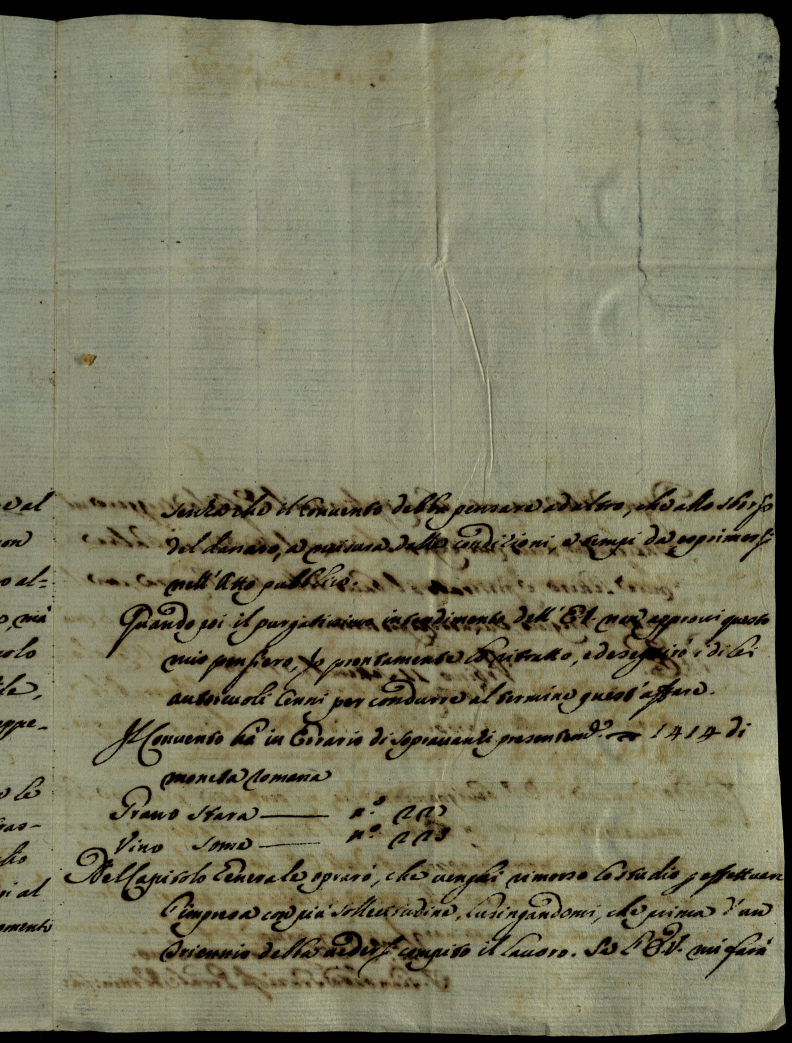 e al
non
o al-
o, mà
uolo
ile,
eppe-
o le
ras-
lio
ri al
omenti
senza che il Convento debba pensare ad altro, che allo sborso
del danaro, a misura delle condizioni, e tempi da esprimersi
nell'Atto pubblico.
Quando poi il purgatissimo intendimento dell'E.V. non approvi questo
mio pensiero, Io prontamente lo ritratto, ed eseguirò i di lei
autorevoli Cenni per condurre al termine quest'affare.
Il Convento hà in Erario di Sopravanzi 1414 di
moneta romana
Grano Stara — n.º
Vino Some — n.º
Nel Capitolo Generale oprarò, che venghi rimesso lo studio p effettuare
l'impresa con più sollecitudine, lusingandomi, che prima d'un
triennio debba vedersi compito il lavoro. Se l'E.V. mi farà